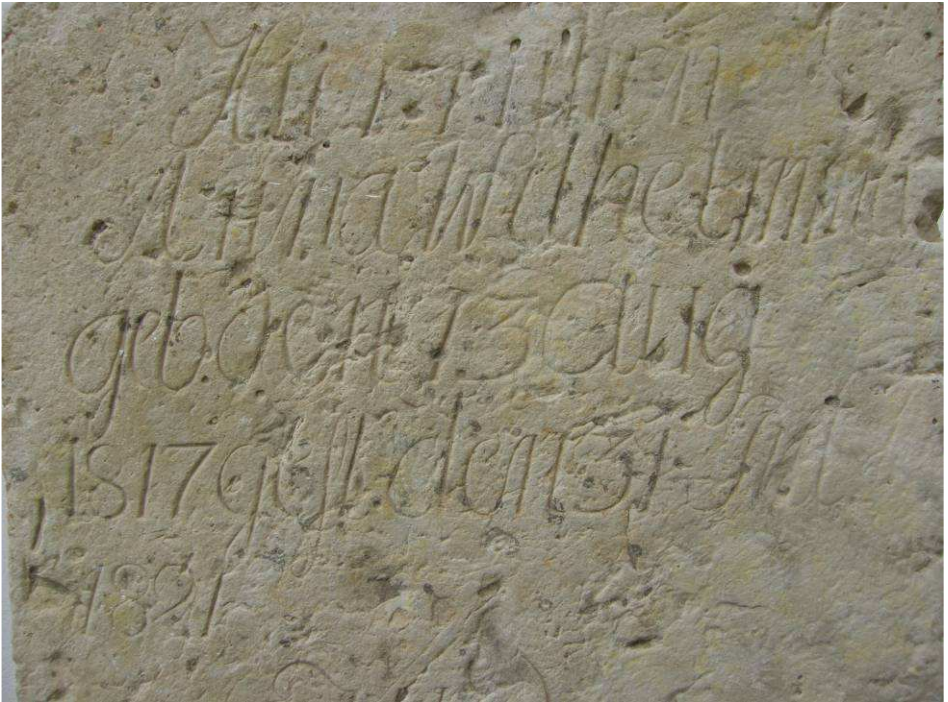 Hier ruhen
Anna Wilhelmin
geb den 13 Aug
1817 gest. den 31
1821